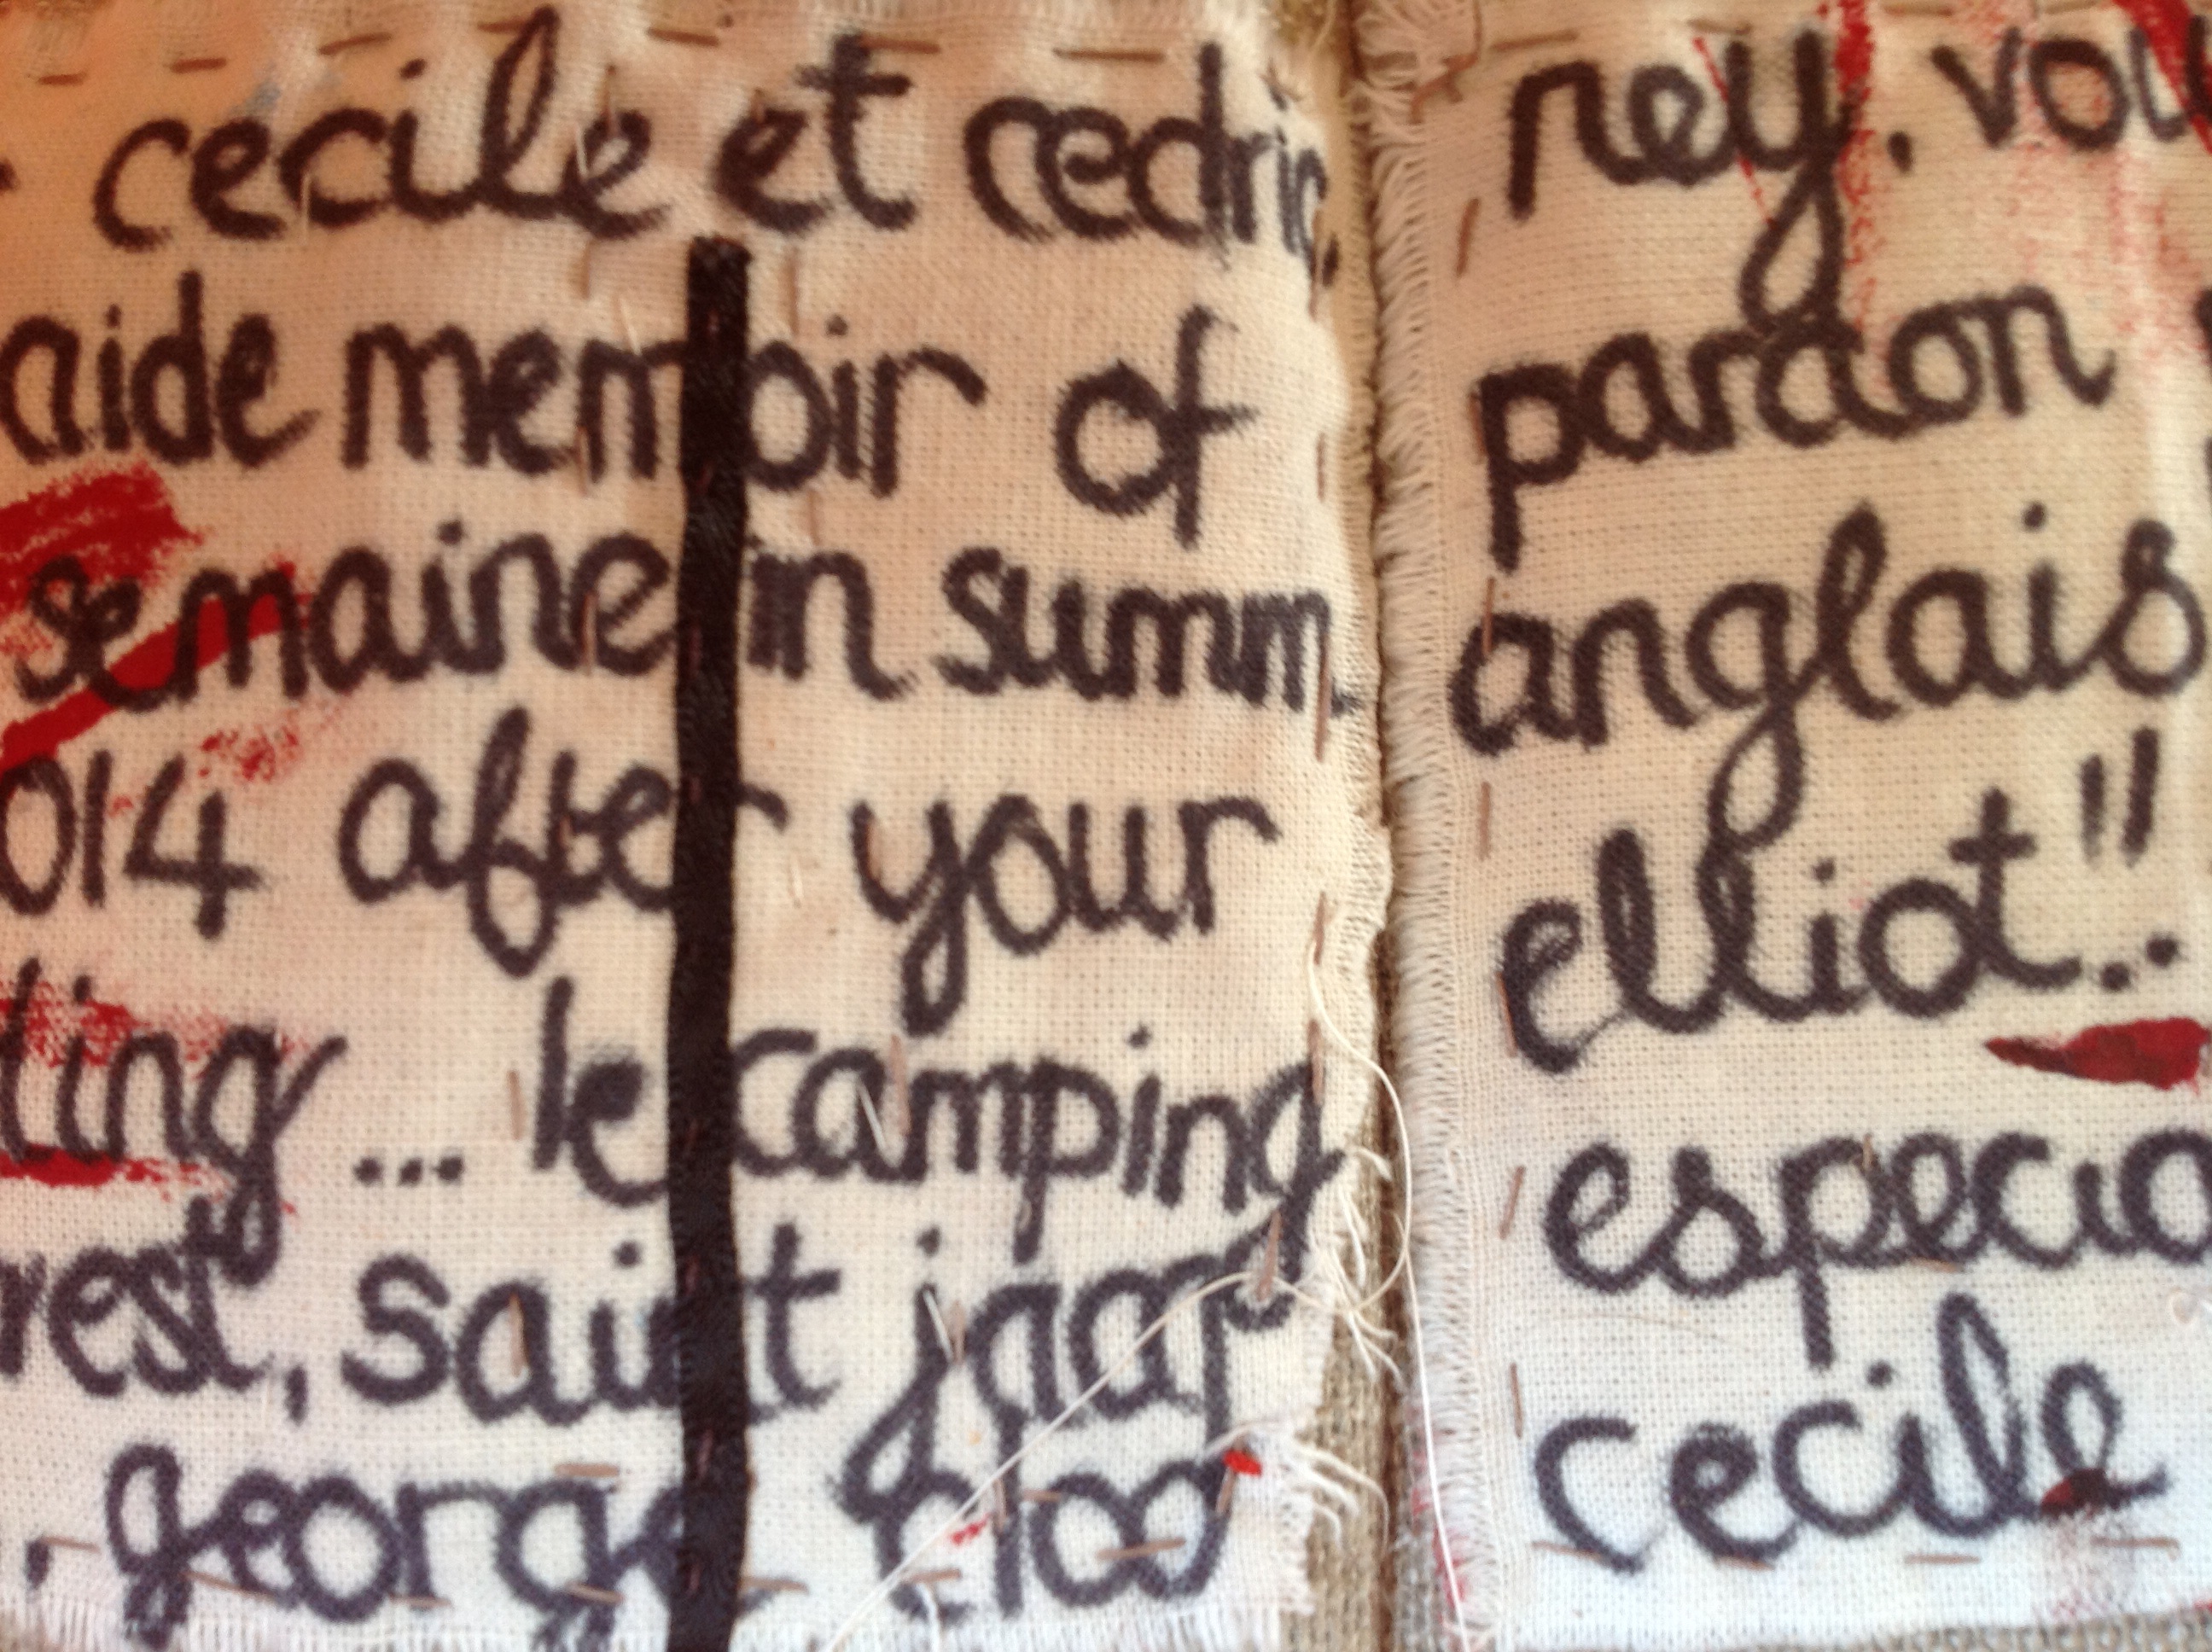 cecile et cedric
aide memoir of
semaine in summ
014 after your
ting ... le camping
rest, saint jacq
. george
rey. vou
pardon
anglais
elliot"..
especia
cecile